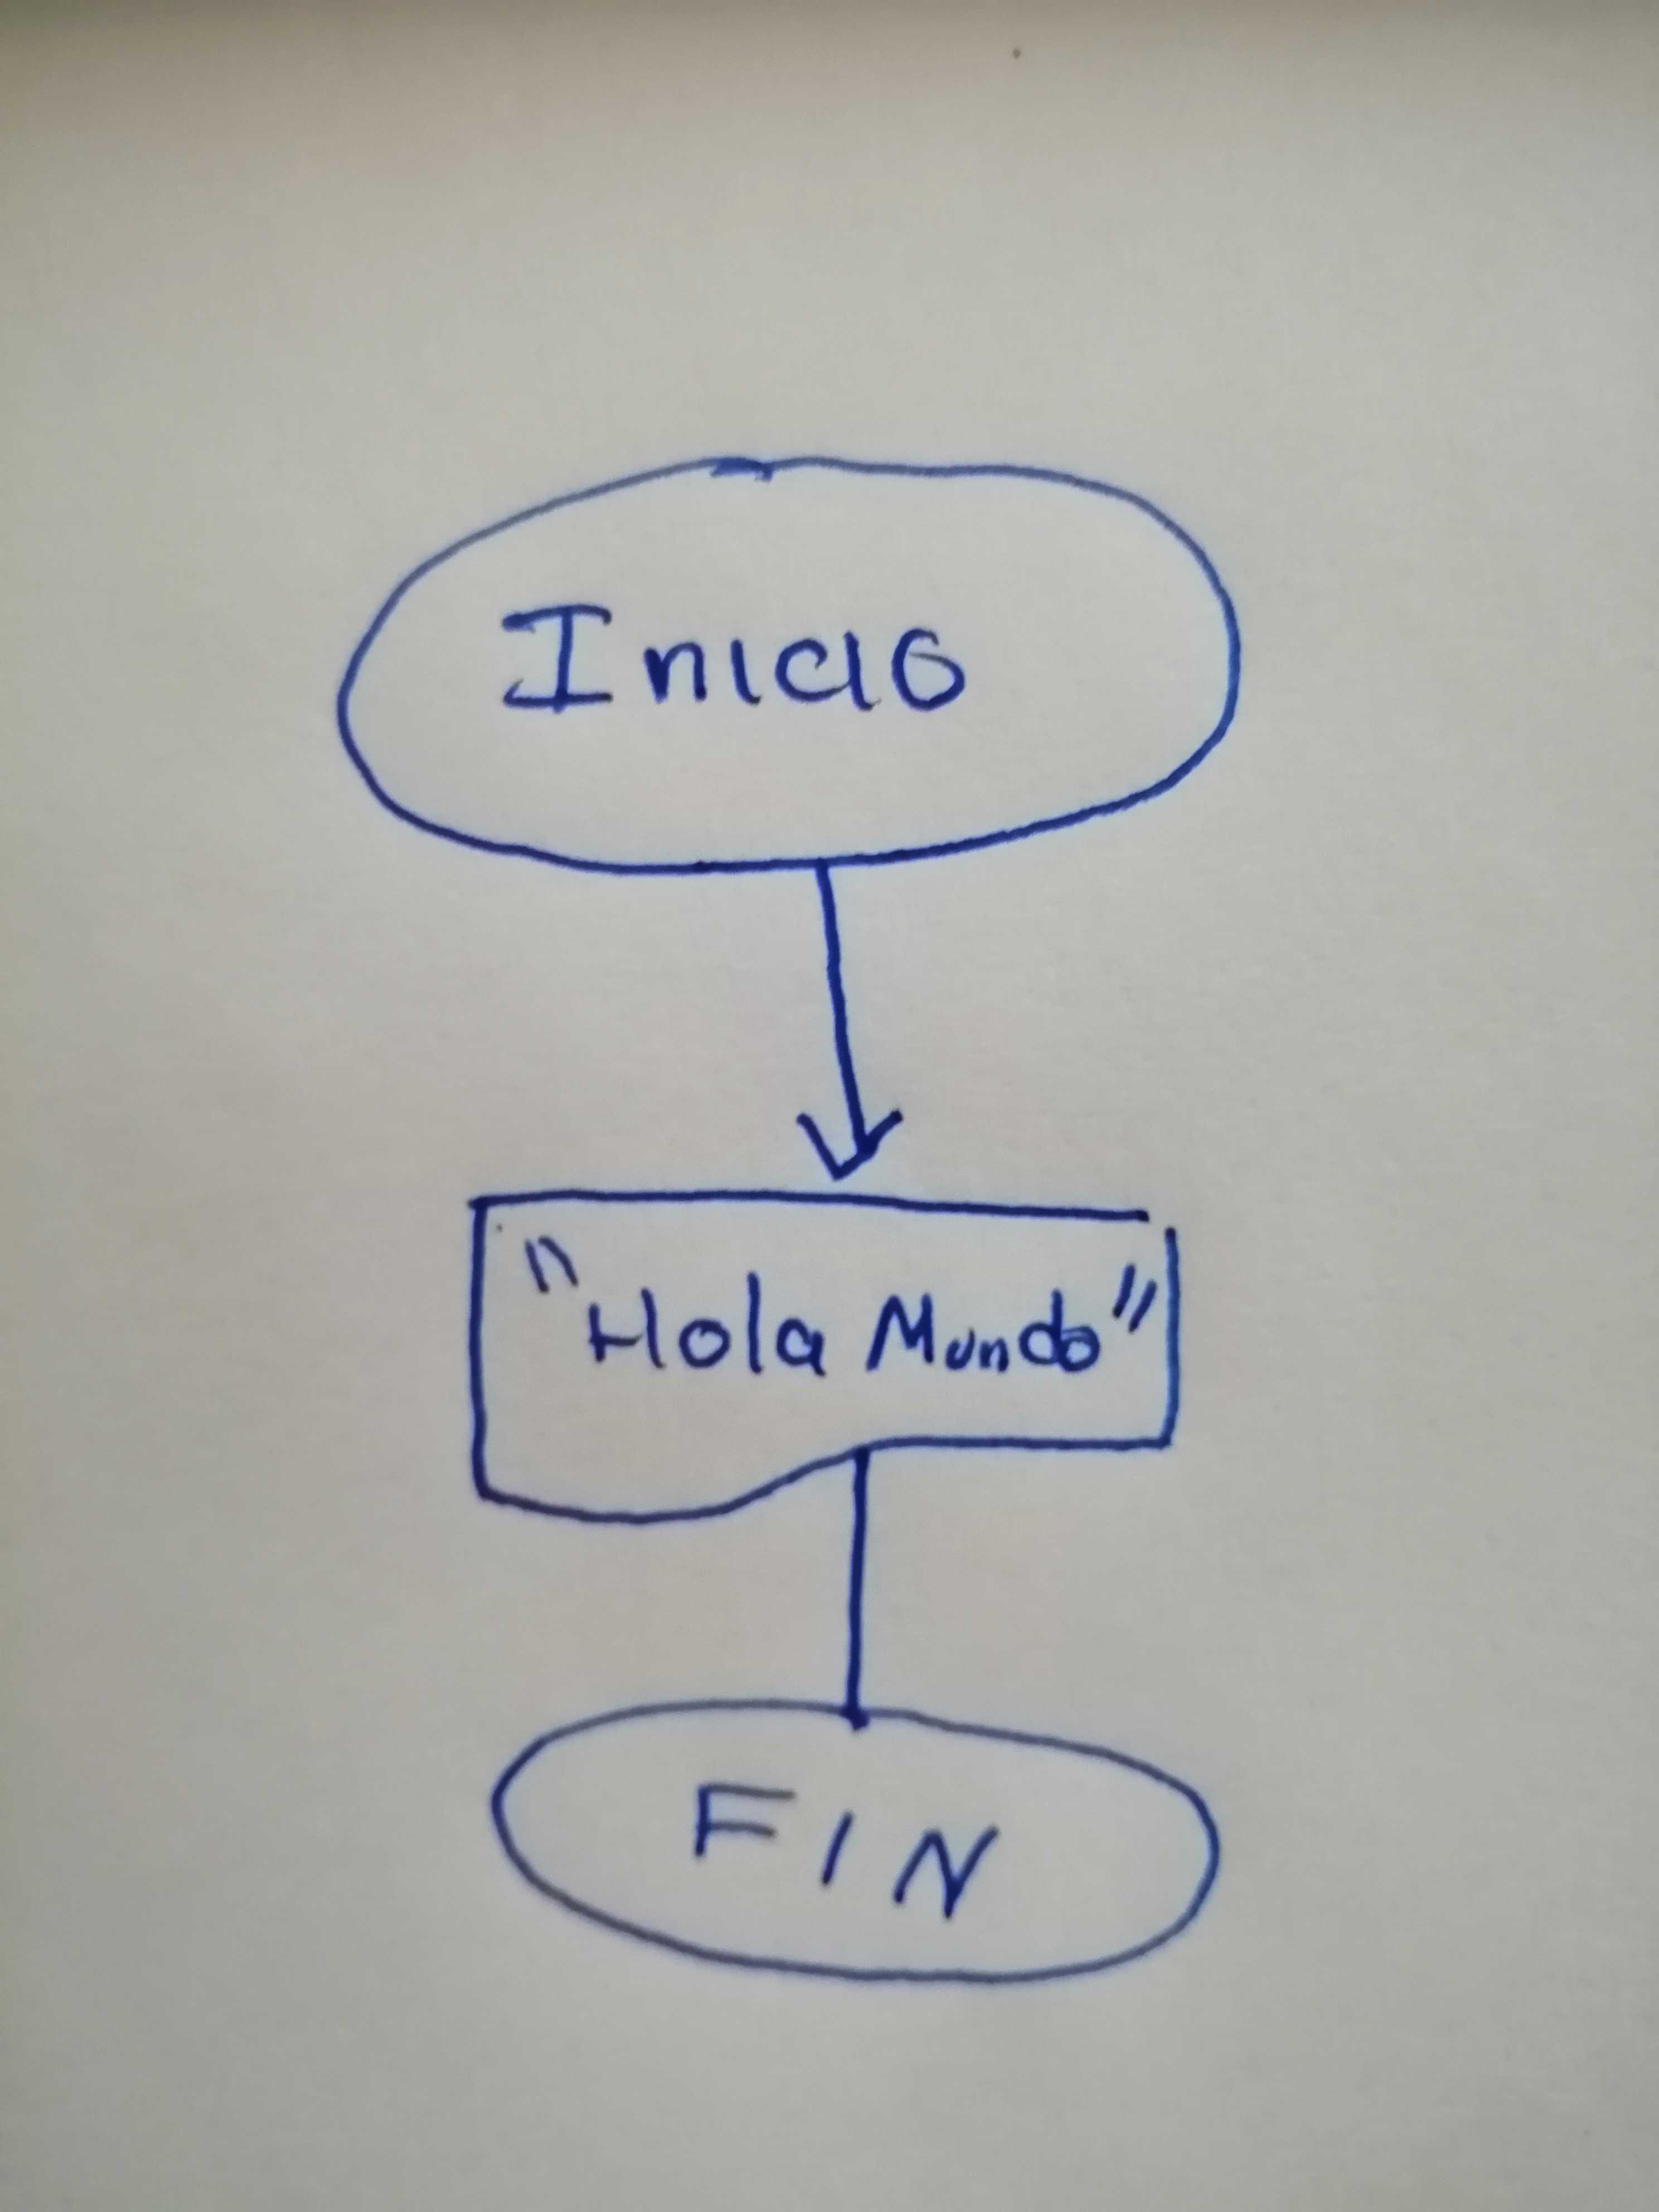 Inicio
"Hola Mundo"
FIN